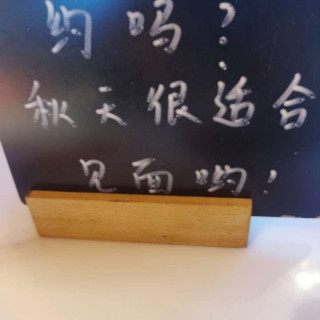 约吗？
秋天很适合
见面哟！